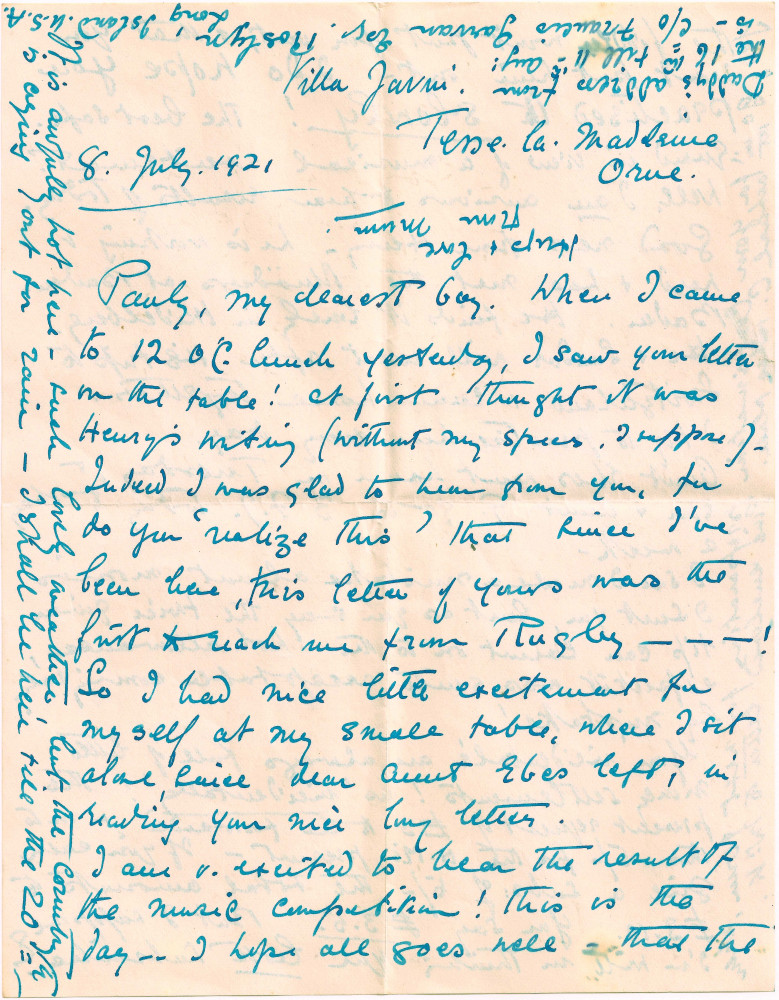 Villa Javni.
Tesse. la. Madeleine
Orne.
8. July. 1921
Pauly, my dearest boy. When I came
to 12 OC. lunch yesterday, I saw your letter
on the table! at first thought it was
Henry's writing (without my specs, I suppose).
Indeed I was glad to hear from you, for
do you "realize this" that since I've
been here, this letter of yours was the
first to reach me from Rugby – – – !
So I had nice little excitement for
myself at my small table, where I sit
alone, since dear Aunt Ebes left, in
reading your nice long letter.
I am v. excited to hear the result of
the music competition! this is the
day -- I hope all goes well – that the
It is awfully hot here – such lovely weather but the Country
is crying out for rain – I shall be here till the 20th
Daddy's address from
the 16th till 11th Aug:
is – c/o Francis Garvan Esq. Roslyn
Long Island. U.S.A.
+ love
from Mum.